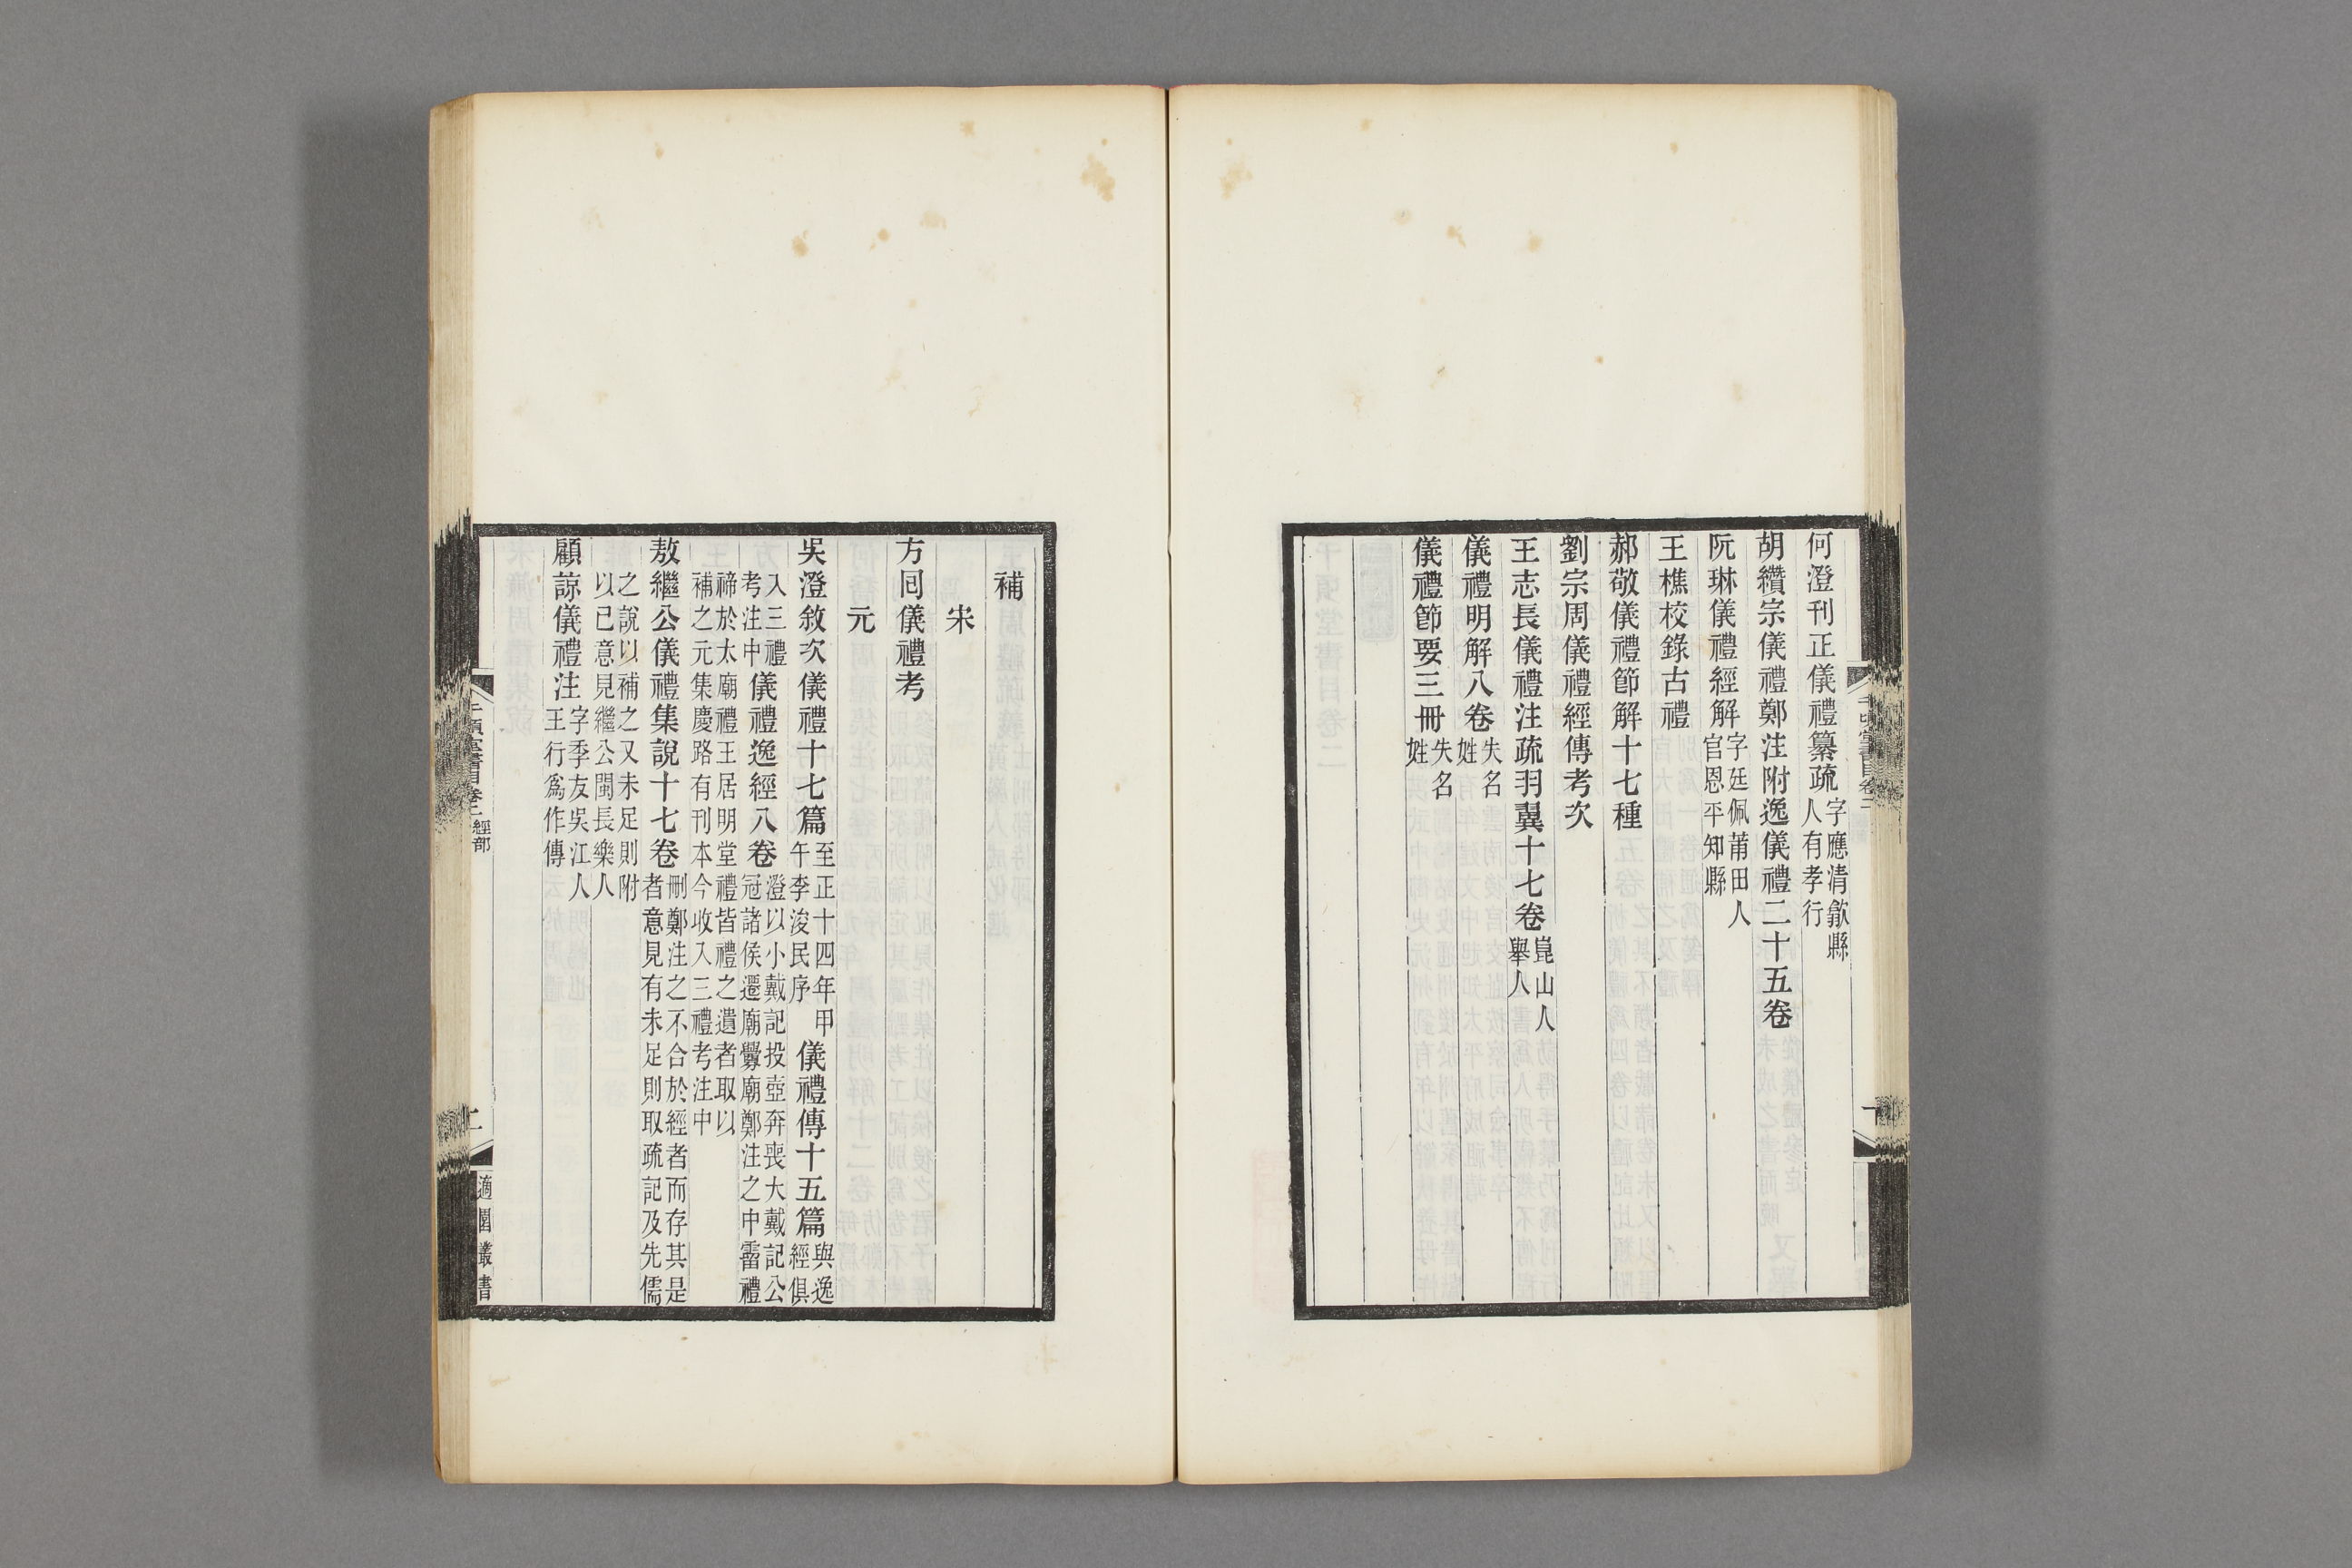 何澄刊正儀禮纂疏字應清歙縣人有孝行
胡纘宗儀禮鄭注附逸儀禮二十五卷
阮琳儀禮經解字廷佩莆田人官恩平知縣
王樵校錄古禮
郝敬儀禮節解十七種
劉宗周儀禮經傳考次
王志長儀禮注疏羽翼十七卷崑山人舉人
儀禮明解八卷失名姓
儀禮節要三冊失名姓
補
宋
方回儀禮考
元
吳澄敘次儀禮十七篇至正十四年甲午李浚民序 儀禮傳十五篇與逸經俱
入三禮考注中儀禮逸經八卷澄以小戴記投壺奔喪大戴記公冠諸侯遷廟釁廟鄭注之中霤禮
禘於太廟禮王居明堂禮皆禮之遺者取以補之元集慶路有刊本今收入三禮考注中
敖繼公儀禮集說十七卷刪鄭注之不合於經者而存其是者意見有未足則取疏記及先儒
之說以補之又未足則附以己意見繼公閩長樂人
顧諒儀禮注字季友吳江人王行為作傳
千頃堂書目卷二 經部
適園叢書